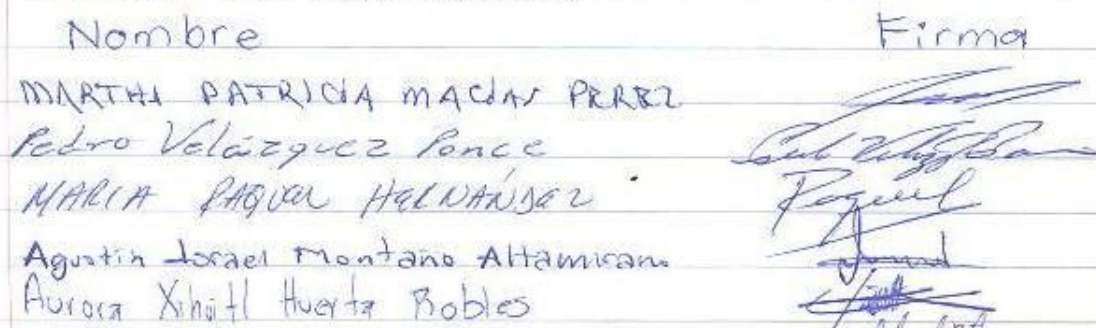 Nombre Firma
MARTHA PATRICIA MACIAS PEREZ
Pedro Velázquez Ponce
MARIA RAQUEL HERNANDEZ Raquel
Agustin Israel Montaño Altamirano
Aurora Xihuitl Huerta Robles